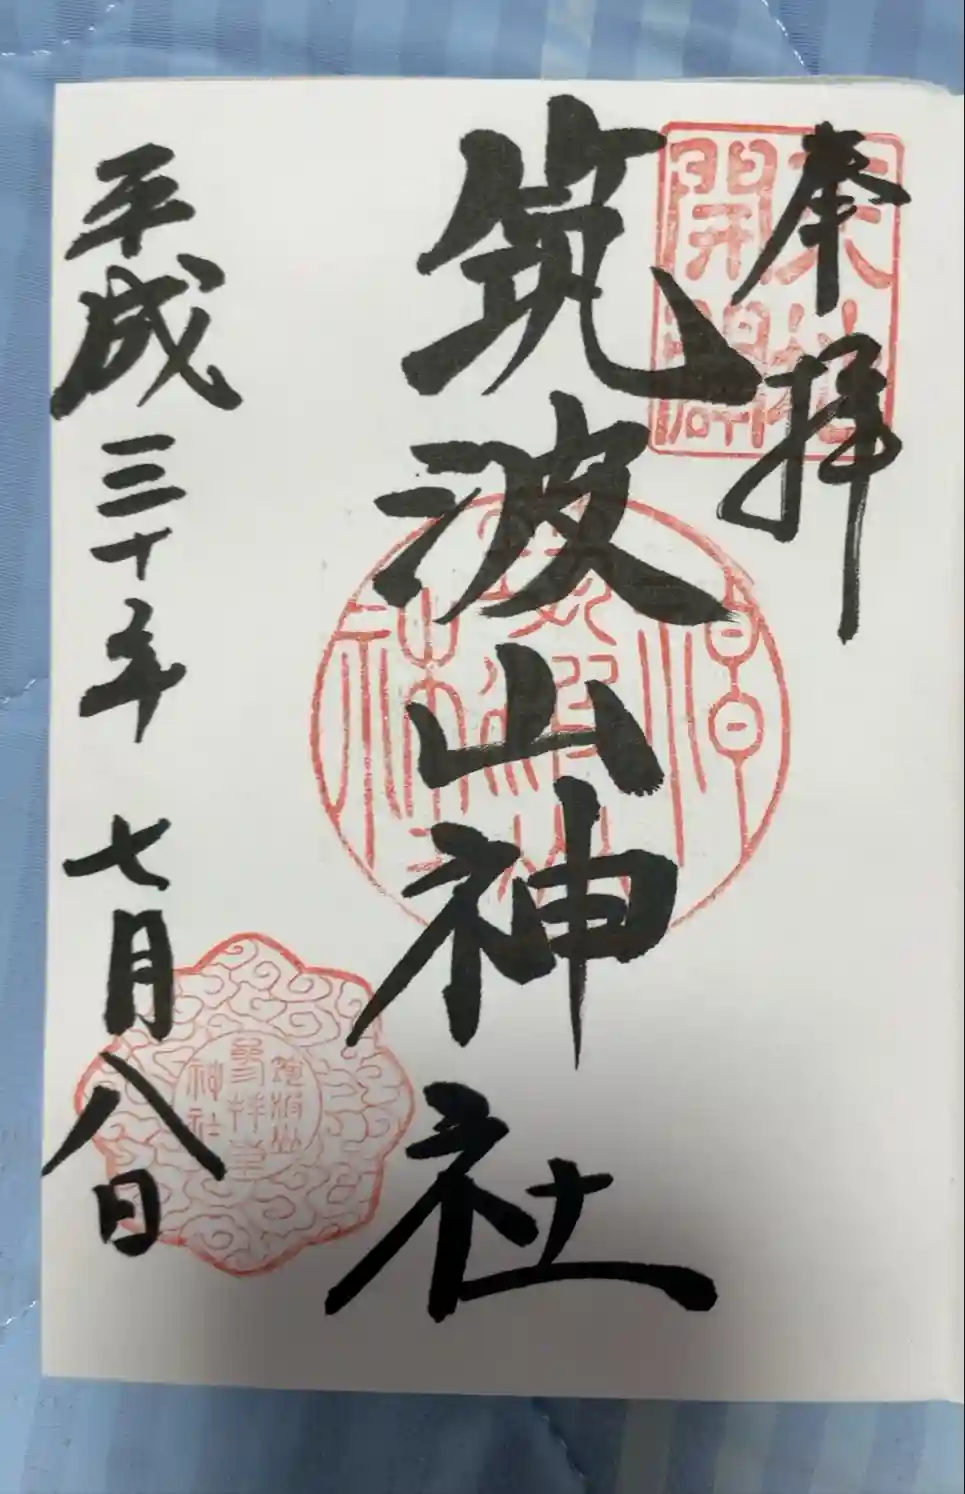 奉拝
筑波山神社
平成三十年 七月八日
天地開闢
筑波山
神社